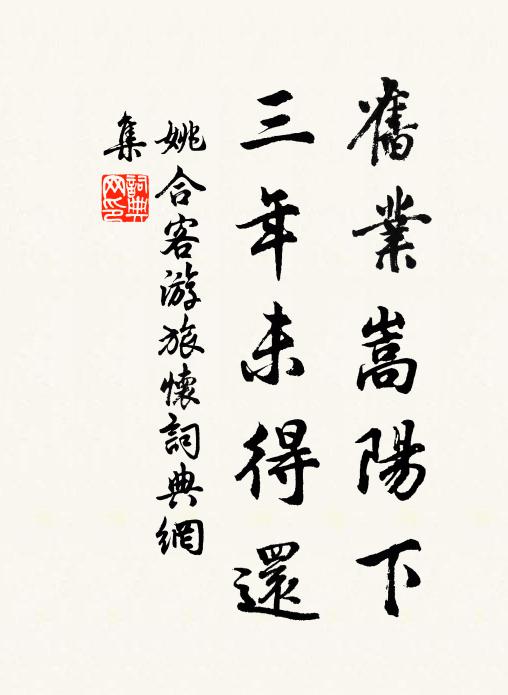 舊業嵩陽下
三年未得還
姚合客游旅懷詞典網
集
詞典
网印